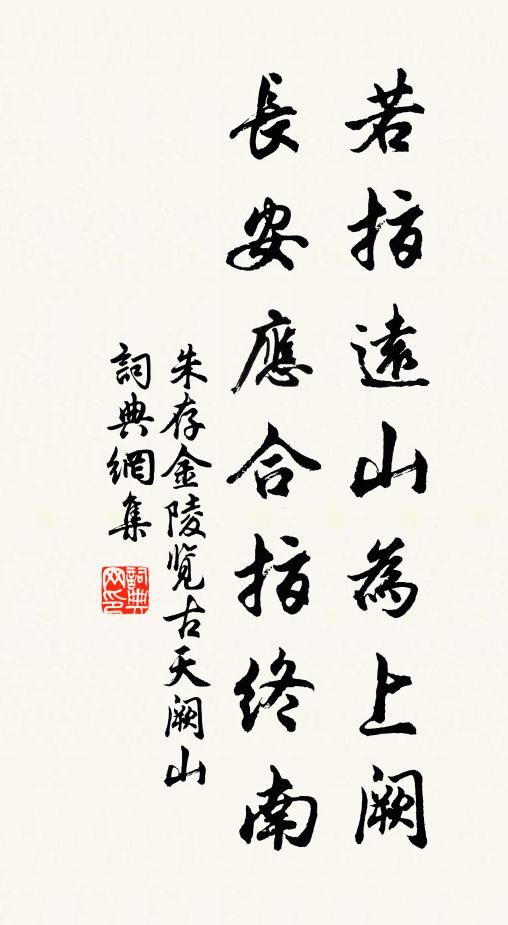 若指遠山為上闕
長安應合指終南
朱存金陵览古天闕山
詞典網集
詞典
网印